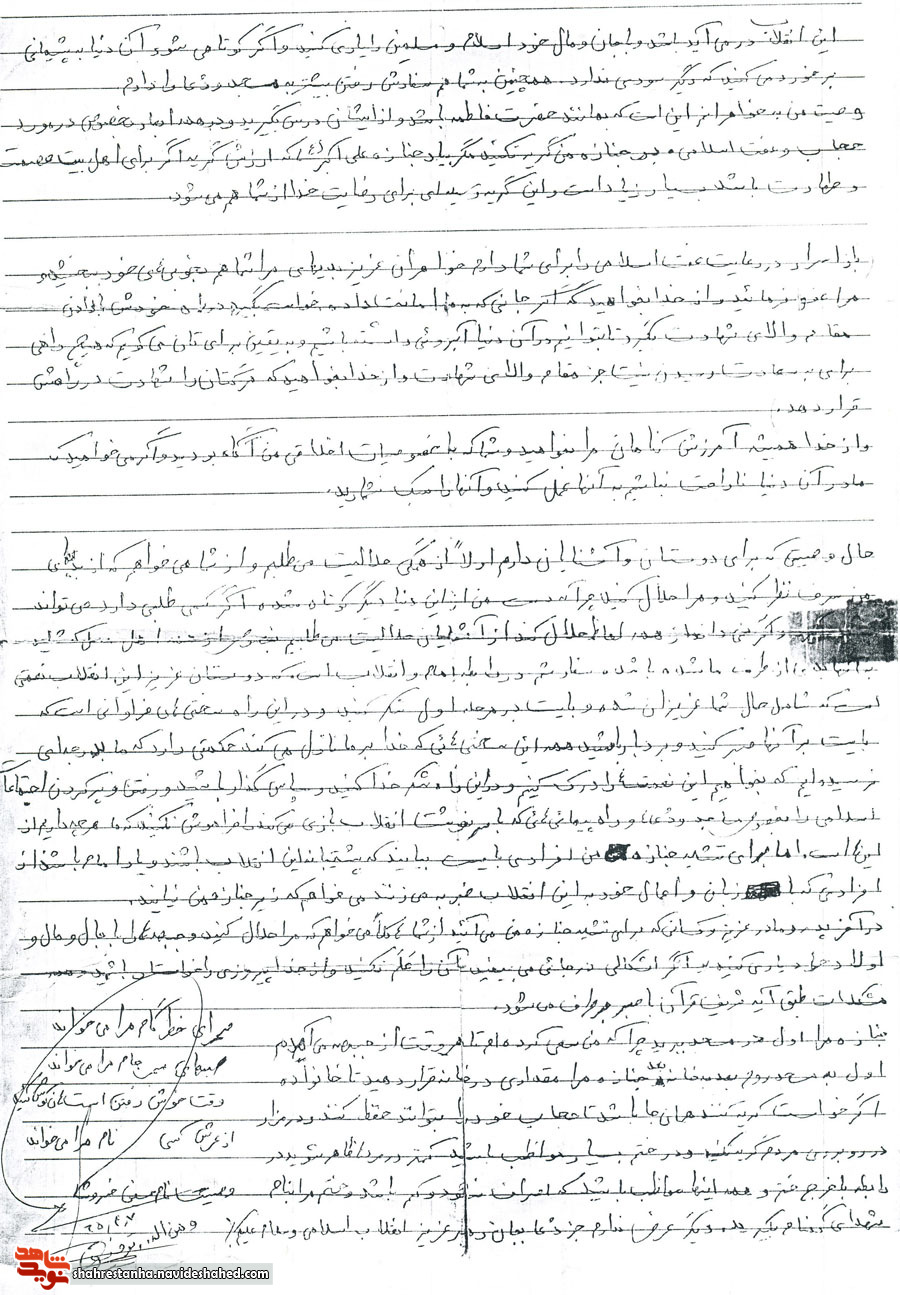 این انقلاب در می آید باشد و با جان و مال خود اسلام و مسلمین را یاری کنید و اگر کوتاهی شود آن دنیا به پشیمانی
بر خورد می کنید که دیگر سودی ندارد. همچنین به شما هم سفارش رفتن بیشتر به مسجد و دعا را دارم
وصیت من به خواهرانم این است که همانند حضرت فاطمه باشند و از ایشان درس بگیرید و در همه ابعاد بخصوص در مورد
حجاب و عفت اسلامی و بر جنازه من گریه نکنید مگر بیاد جنازه علی اکبر که ارزش گریه اگر برای اهل بیت عصمت
و طهارت باشد بسیار زیاد است و این گریه وسیله ای برای رضایت خدا از شما هم می شود.
باز اصرار در رعایت عفت اسلامی را برای شما دارم خواهران عزیز بدیهای مرا شما هم بخوبی های خود ببخشید و
مرا عفو فرمائید و از خدا بخواهید که اگر جانی که به ما امانت داده خواست بگیرد در راه خودش با دادن
مقام والای شهادت بگیرد تا بتوانیم در آن دنیا آبروئی داشته باشیم و به یقین برای تان می گویم که هیچ راهی
برای به سعادت رسیدن نیست جز مقام والای شهادت و از خدا بخواهید که مرگتان را شهادت در راهش
قرار دهد.
و از خدا همیشه آمرزش گناهان مرا بخواهید و شما که با خصوصیات اخلاقی من آگاه بودید و اگر می خواهید که
ما در آن دنیا ناراحت نباشیم به آنها عمل کنید و آنها را سبک نشمارید.
حال وصیتی که برای دوستان و آشنایان دارم اولاً از همگی حلالیت می طلبم و از شما می خواهم که از بدیهای
من صرف نظر کنید و مرا حلال کنید چرا که دست من از این دنیا دیگر کوتاه شده اگر کسی طلبی دارد می تواند
و اگر نمی داند از همه لطفا حلال کند از آشنایان حلالیت می طلبم
از طرف ما شده باشد سفارشم در رابطه با امام و انقلاب است که دوستان عزیز این انقلاب نعمتی
است که شامل حال شما عزیزان شده و بایست در مرحله اول شکر کنید و در این راه سختی های فراوانی است که
بایست بر آنها صبر کنید و بردبار باشید همه این سختی هائی که خدا بر ما نازل می کند حکمتی دارد که ما به مرحله ای
نرسیده ایم که بخواهیم این نعمت ها را درک کنیم و در این راه شکر خدا کنید و سپاس گذار باشید و رفتن و پر کردن اجتماعات
اسلامی را بخصوص مساجد و دعاها و راه پیمائی هائی که با سرنوشت انقلاب بازی می کند فراموش نکنید که ما هر چه داریم از
این ها است. اما برای تشییع جنازه من افرادی بایست بیایند که پشتیبان این انقلاب باشند و یار امام باشند از
افرادی که با زبان و اعمال خود به این انقلاب ضربه می زنند می خواهم که زیر جنازه من نیایند.
در آخر پدر و مادر عزیز و کسانی که برای تشییع جنازه من می آئید از شما ها کلاً می خواهم که مرا حلال کنید و همه ما را با جان و مال و
اولاد خود یاری کنید و اگر اشکالی در جائی می بینید آن را علم نکنید و از خدا پیروزی را خواستار باشید و همه
مشکلات طبق آیه شریف قرآن با صبر برطرف می شود.
جنازه مرا اول به مسجد ببرید چرا که من سعی کرده ام تا هر وقت از جبهه می آمدم
اول به مسجد روم بعد به خانه و بعد جنازه مرا مقداری در خانه قرار دهید تا خانواده
اگر خواست گریه کنند همان جا باشد تا حجاب خود را بتوانند حفظ کنند و در مزار
در روبروی مردم گریه نکنید و در ختم بسیار مواظب باشید کمتر در مرد ظاهر شوید در
رابطه با خرج ختم و همه اینها مواظب باشید که اصراف نشود و کم باشد و ختم مرا بنام
شهدای گمنام بگیرید و دیگر عرضی ندارم جز دعا بجان رهبر عزیز انقلاب اسلامی و سلام علیکم
میرای خطر گام مرا می خواند
صهبای سپر جام مرا می خواند
وقت خوش رفتن است هان گوش کنید
از عرش کسی نام مرا می خواند
وصیت نامه
و من الله التوفیق
shahrestanha.navideshahed.com
نوید شاهد